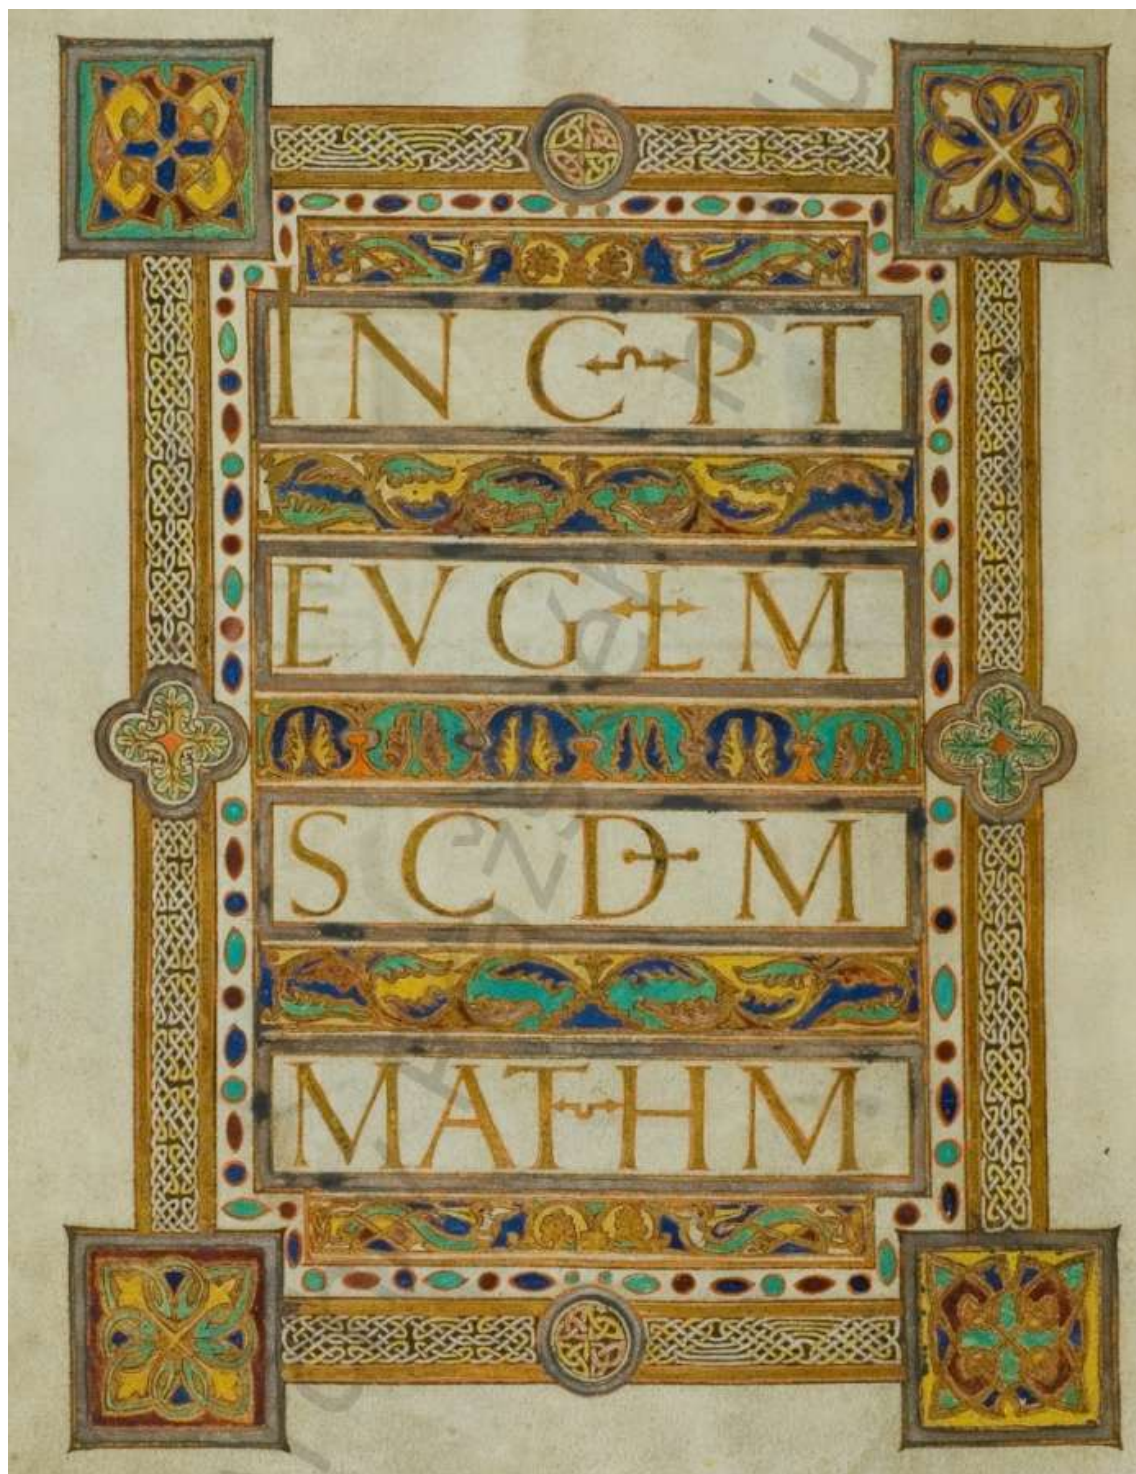 IN CPT
EVGLM
SC DM
MATHM